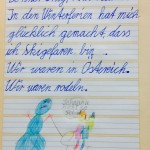 In den Winterferien hat mich
glücklich gemacht, dass
ich Skigefaren bin.
Wir waren in Östereich.
Wir waren rodeln.